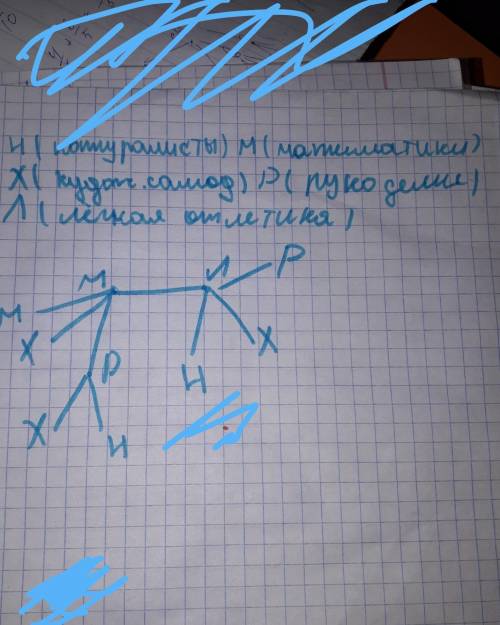 Н( нотуралисты) М( математики)
Х( худож. самод) Р( рукоделие)
Л( легкая отлетика)
М Л Р
М
Х Р Н Х
Х Н